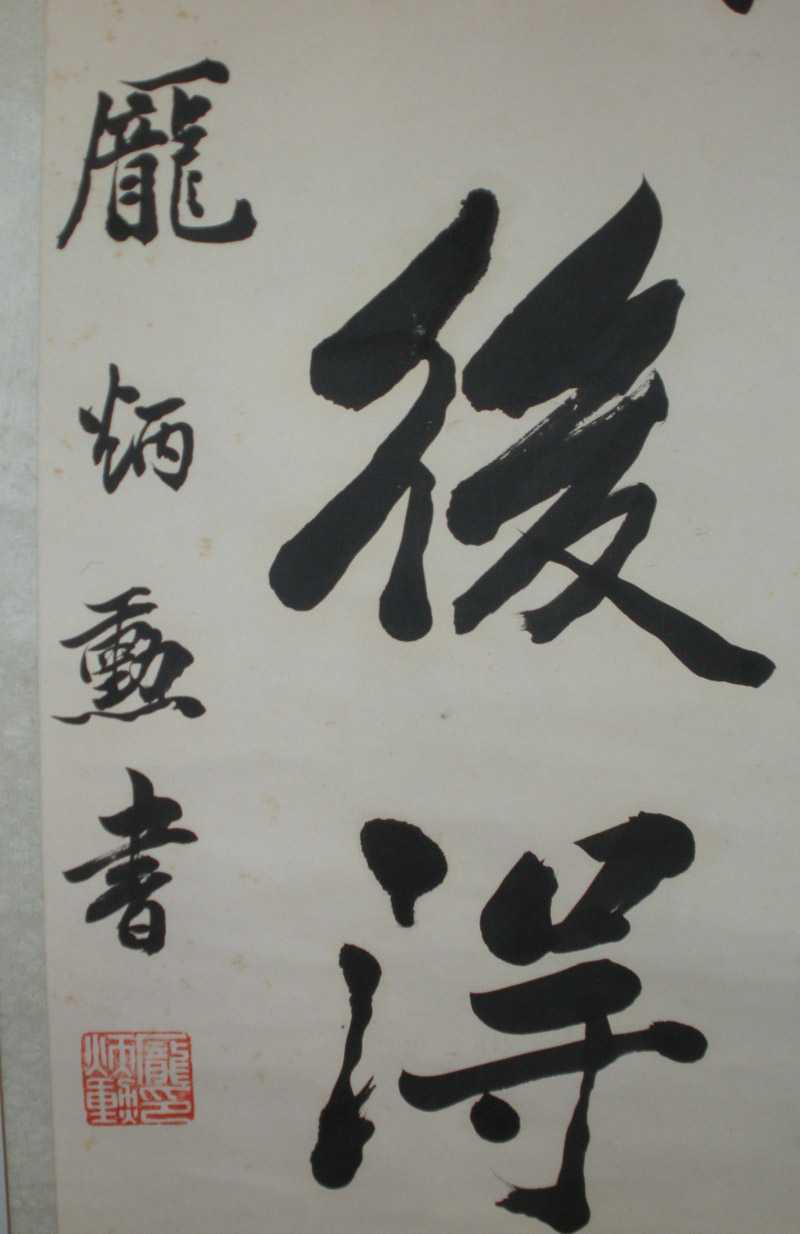 後得
龐炳勳書
龐炳勳印